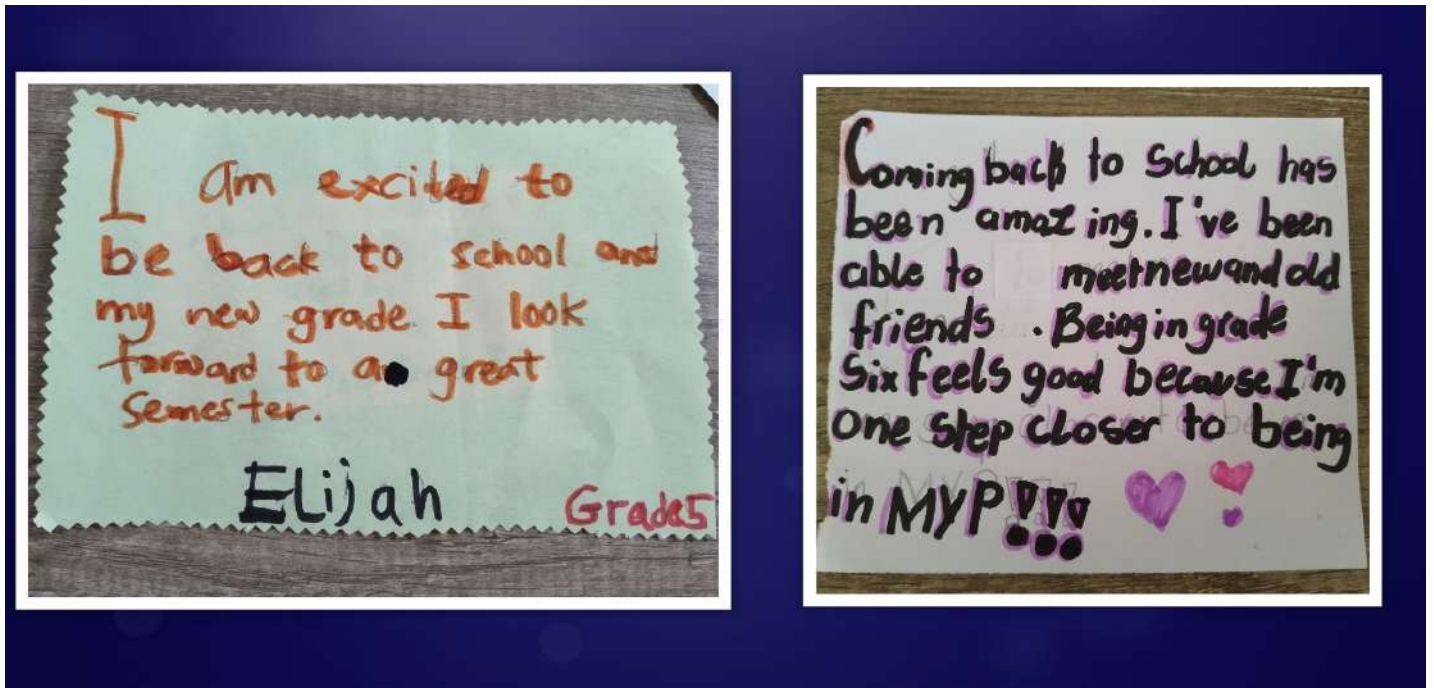 I am excited to
be back to school and
my new grade. I look
forward to a great
semester.
Elijah
Grade5
Coming back to School has
been amazing. I've been
able to meet new and old
friends. Being in grade
Six feels good because I'm
one step closer to being
in MYP!!!